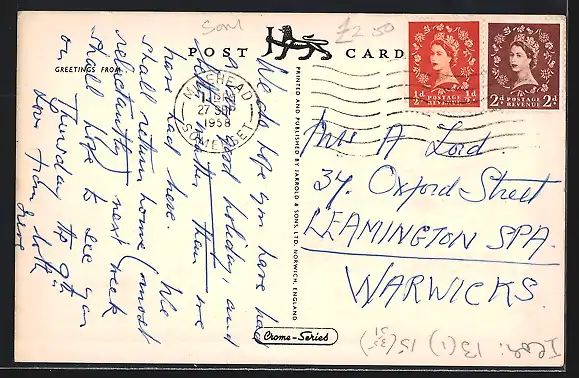 Som
£2.50
POST CARD
GREETINGS FROM
MINEHEAD
27 SEP
1958
SOMERSET
½d POSTAGE REVENUE ½d
2d POSTAGE REVENUE 2d
We do hope you have had
a good holiday, and
better weather than we
have had here. We
shall return home (most
reluctantly) next week
& shall hope to see you
on Thursday the 9th
Love from both
Irene
PRINTED AND PUBLISHED BY JARROLD & SONS, LTD. NORWICH, ENGLAND
Mrs A Lord
34, Oxford Street
LEAMINGTON SPA.
WARWICKS.
Crome-Series
13 (1) 15